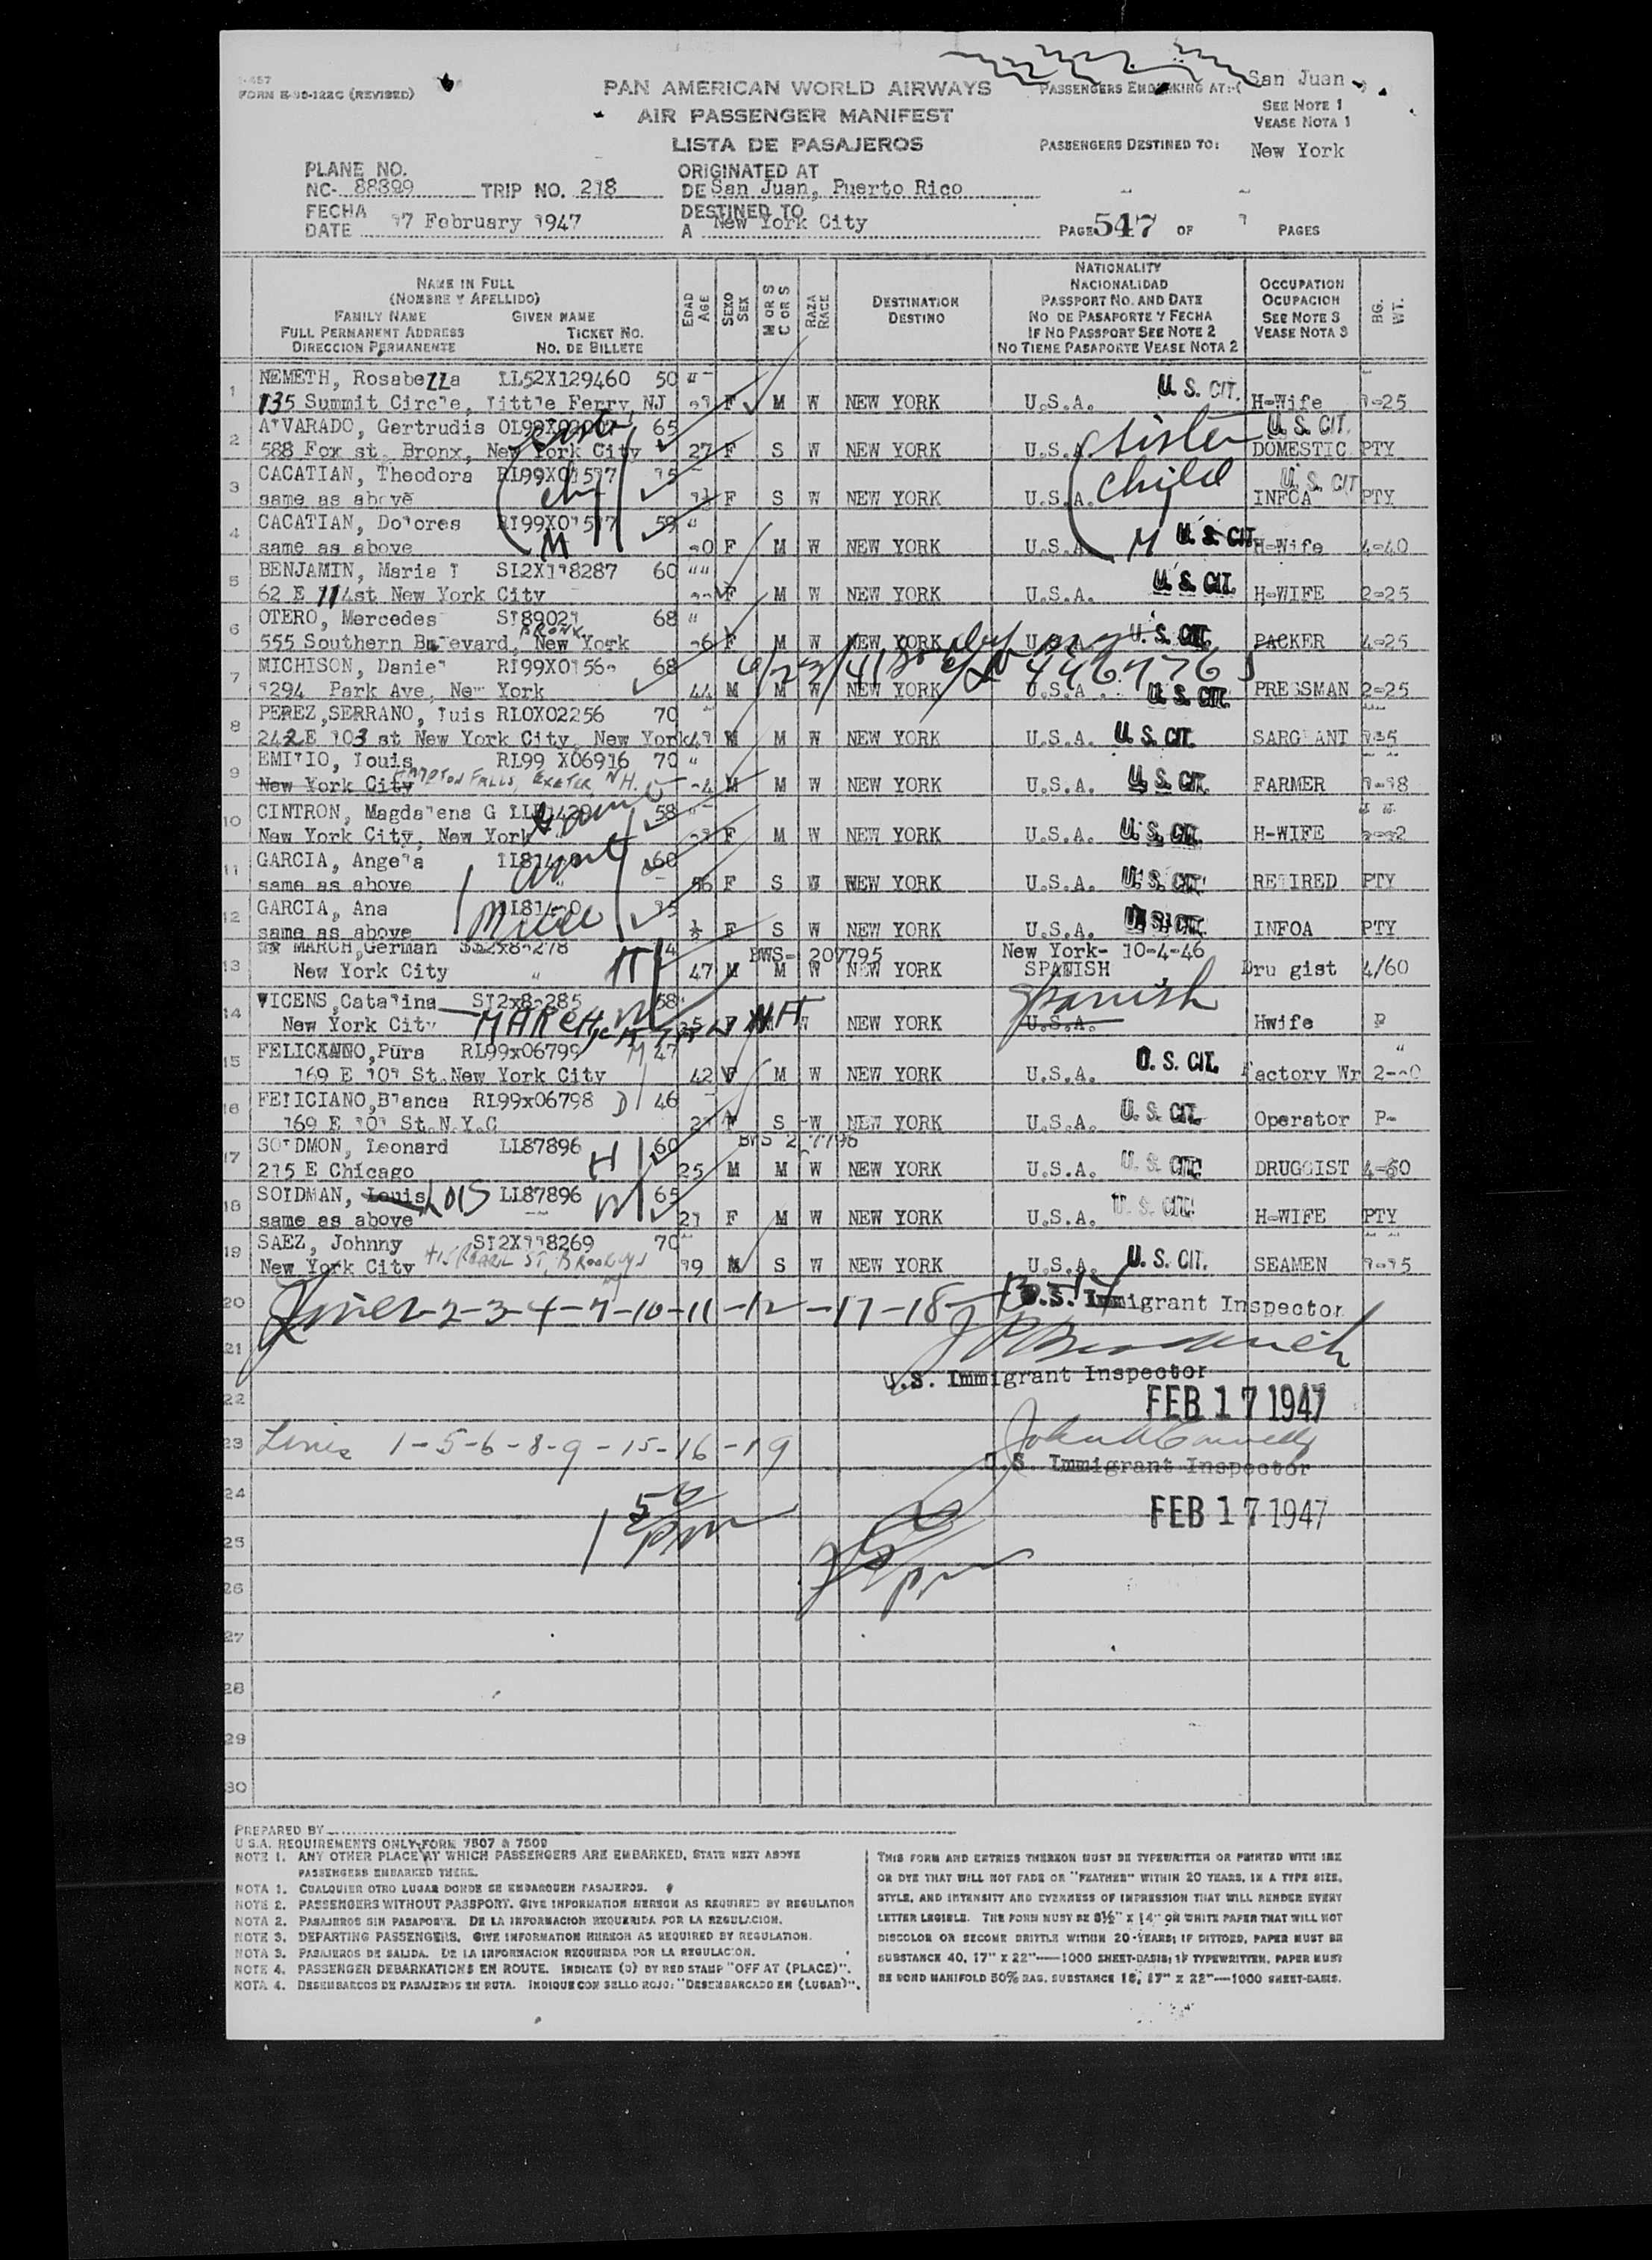 I-457
FORM E-90-122C (REVISED)
PAN AMERICAN WORLD AIRWAYS
AIR PASSENGER MANIFEST
LISTA DE PASAJEROS
PASSENGERS EMBARKING AT:-( San Juan
SEE NOTE 1
VEASE NOTA 1
PASSENGERS DESTINED TO: New York
PLANE NO.
NC- 88899 TRIP NO. 218
ORIGINATED AT
DE San Juan, Puerto Rico
FECHA
DATE 17 February 1947
DESTINED TO
A New York City
PAGE 547 OF 1 PAGES
NAME IN FULL
(NOMBRE Y APELLIDO)
FAMILY NAME GIVEN NAME
FULL PERMANENT ADDRESS TICKET NO.
DIRECCION PERMANENTE NO. DE BILLETE
EDAD AGE
SEXO SEX
M OR S
C OR S
RAZA RACE
DESTINATION
DESTINO
NATIONALITY
NACIONALIDAD
PASSPORT NO. AND DATE
NO DE PASAPORTE Y FECHA
IF NO PASSPORT SEE NOTE 2
NO TIENE PASAPORTE VEASE NOTA 2
OCCUPATION
OCUPACION
SEE NOTE 3
VEASE NOTA 3
BG. WT.
1 NEMETH, Rosabella LL52X129460 50 U. S. CIT.
135 Summit Circle, Little Ferry, NJ F M W NEW YORK U.S.A. H-Wife 1-25
2 ALVARADO, Gertrudis 65 sister U. S. CIT.
588 Fox st. Bronx, New York City 27 F S W NEW YORK U.S.A. DOMESTIC PTY
3 CACATIAN, Theodora RL99X01517 15 child U. S. CIT
same as above F S W NEW YORK U.S.A. PTY
4 CACATIAN, Dolores RL99X01517 59 M U. S. CIT
same as above M F M W NEW YORK U.S.A. H-Wife 4-40
5 BENJAMIN, Maria I SI2X118287 60 U. S. CIT.
62 E 114st New York City F M W NEW YORK U.S.A. H-WIFE 2-25
6 OTERO, Mercedes 68
BRONX
555 Southern Bulevard, New York F M W NEW YORK U.S.A. U. S. CIT. PACKER 4-25
7 MICHISON, Daniel 68
1294 Park Ave, New York 44 M M W NEW YORK U.S.A. U. S. CIT. PRESSMAN 2-25
8 PEREZ,SERRANO, Luis RLOX02256 70
242E 103 st New York City, New York M M W NEW YORK U.S.A. U. S. CIT. SARGEANT
9 EMILIO, Louis RL99 X06916 70
New York City HAMPTON FALLS, EXETER, N.H. M M W NEW YORK U.S.A. U. S. CIT. FARMER 1-18
10 CINTRON, Magdalena G 58
New York City, New York F M W NEW YORK U.S.A. U. S. CIT. H-WIFE
11 GARCIA, Angela aunt 60
same as above 56 F S W NEW YORK U.S.A. U. S. CIT. RETIRED PTY
12 GARCIA, Ana niece 15
same as above F S W NEW YORK U.S.A. U. S. CIT. PTY
13 MARCH,German H BWS- 207795 New York- 10-4-46
New York City 47 M M W NEW YORK SPANISH Dru gist 4/60
14 VICENS,Catalina 58 Spanish
New York City MARCH W NEW YORK U.S.A. Hwife P
15 FELICIANO,Pura RL99x06799 M 47 U. S. CIT.
169 E 101 St.New York City 42 F M W NEW YORK U.S.A. Factory Wr
16 FELICIANO,Blanca RL99x06798 D 46 U. S. CIT.
169 E 101 St.N.Y.C F S W NEW YORK U.S.A. Operator P-
17 SOLDMON, Leonard LL87896 H 60
215 E Chicago 25 M M W NEW YORK U.S.A. U. S. CIT. DRUGGIST 4-60
18 SOLDMAN, Louis LOIS LL87896 W 65 U. S. CIT.
same as above 21 F M W NEW YORK U.S.A. H-WIFE PTY
19 SAEZ, Johnny SI2X118269 70
New York City 19 M S W NEW YORK U.S.A. U. S. CIT. SEAMEN 1-15
20 Lines 2-3-4-7-10-11-12-17-18-13-14 U.S. Immigrant Inspector
21
U.S. Immigrant Inspector
22 FEB 17 1947
23 Lines 1-5-6-8-9-15-16-19
U.S. Immigrant Inspector
24 1 50 pm FEB 17 1947
25
26
27
28
29
30
PREPARED BY
U.S.A. REQUIREMENTS ONLY-FORM 7507 & 7509
NOTE 1. ANY OTHER PLACE AT WHICH PASSENGERS ARE EMBARKED, STATE NEXT ABOVE
PASSENGERS EMBARKED THERE.
NOTA 1. CUALQUIER OTRO LUGAR DONDE SE EMBARQUEN PASAJEROS.
NOTE 2. PASSENGERS WITHOUT PASSPORT. GIVE INFORMATION HEREON AS REQUIRED BY REGULATION
NOTA 2. PASAJEROS SIN PASAPORTE. DE LA INFORMACION REQUERIDA POR LA REGULACION.
NOTE 3. DEPARTING PASSENGERS. GIVE INFORMATION HEREON AS REQUIRED BY REGULATION.
NOTA 3. PASAJEROS DE SALIDA. DE LA INFORMACION REQUERIDA POR LA REGULACION.
NOTE 4. PASSENGER DEBARKATIONS EN ROUTE. INDICATE (O) BY RED STAMP "OFF AT (PLACE)".
NOTA 4. DESEMBARCOS DE PASAJEROS EN RUTA. INDIQUE CON SELLO ROJO: "DESEMBARCADO EN (LUGAR)".
THIS FORM AND ENTRIES THEREON MUST BE TYPEWRITTEN OR PRINTED WITH INK
OR DYE THAT WILL NOT FADE OR "FEATHER" WITHIN 20 YEARS, IN A TYPE SIZE,
STYLE, AND INTENSITY AND EVENNESS OF IMPRESSION THAT WILL RENDER EVERY
LETTER LEGIBLE. THE FORM MUST BE 8½" X 14" ON WHITE PAPER THAT WILL NOT
DISCOLOR OR BECOME BRITTLE WITHIN 20-YEARS; IF DITTOED, PAPER MUST BE
SUBSTANCE 40, 17" X 22"—1000 SHEET-BASIS; IF TYPEWRITTEN, PAPER MUST
BE BOND MANIFOLD 50% RAG, SUBSTANCE 16, 17" X 22"—1000 SHEET-BASIS.